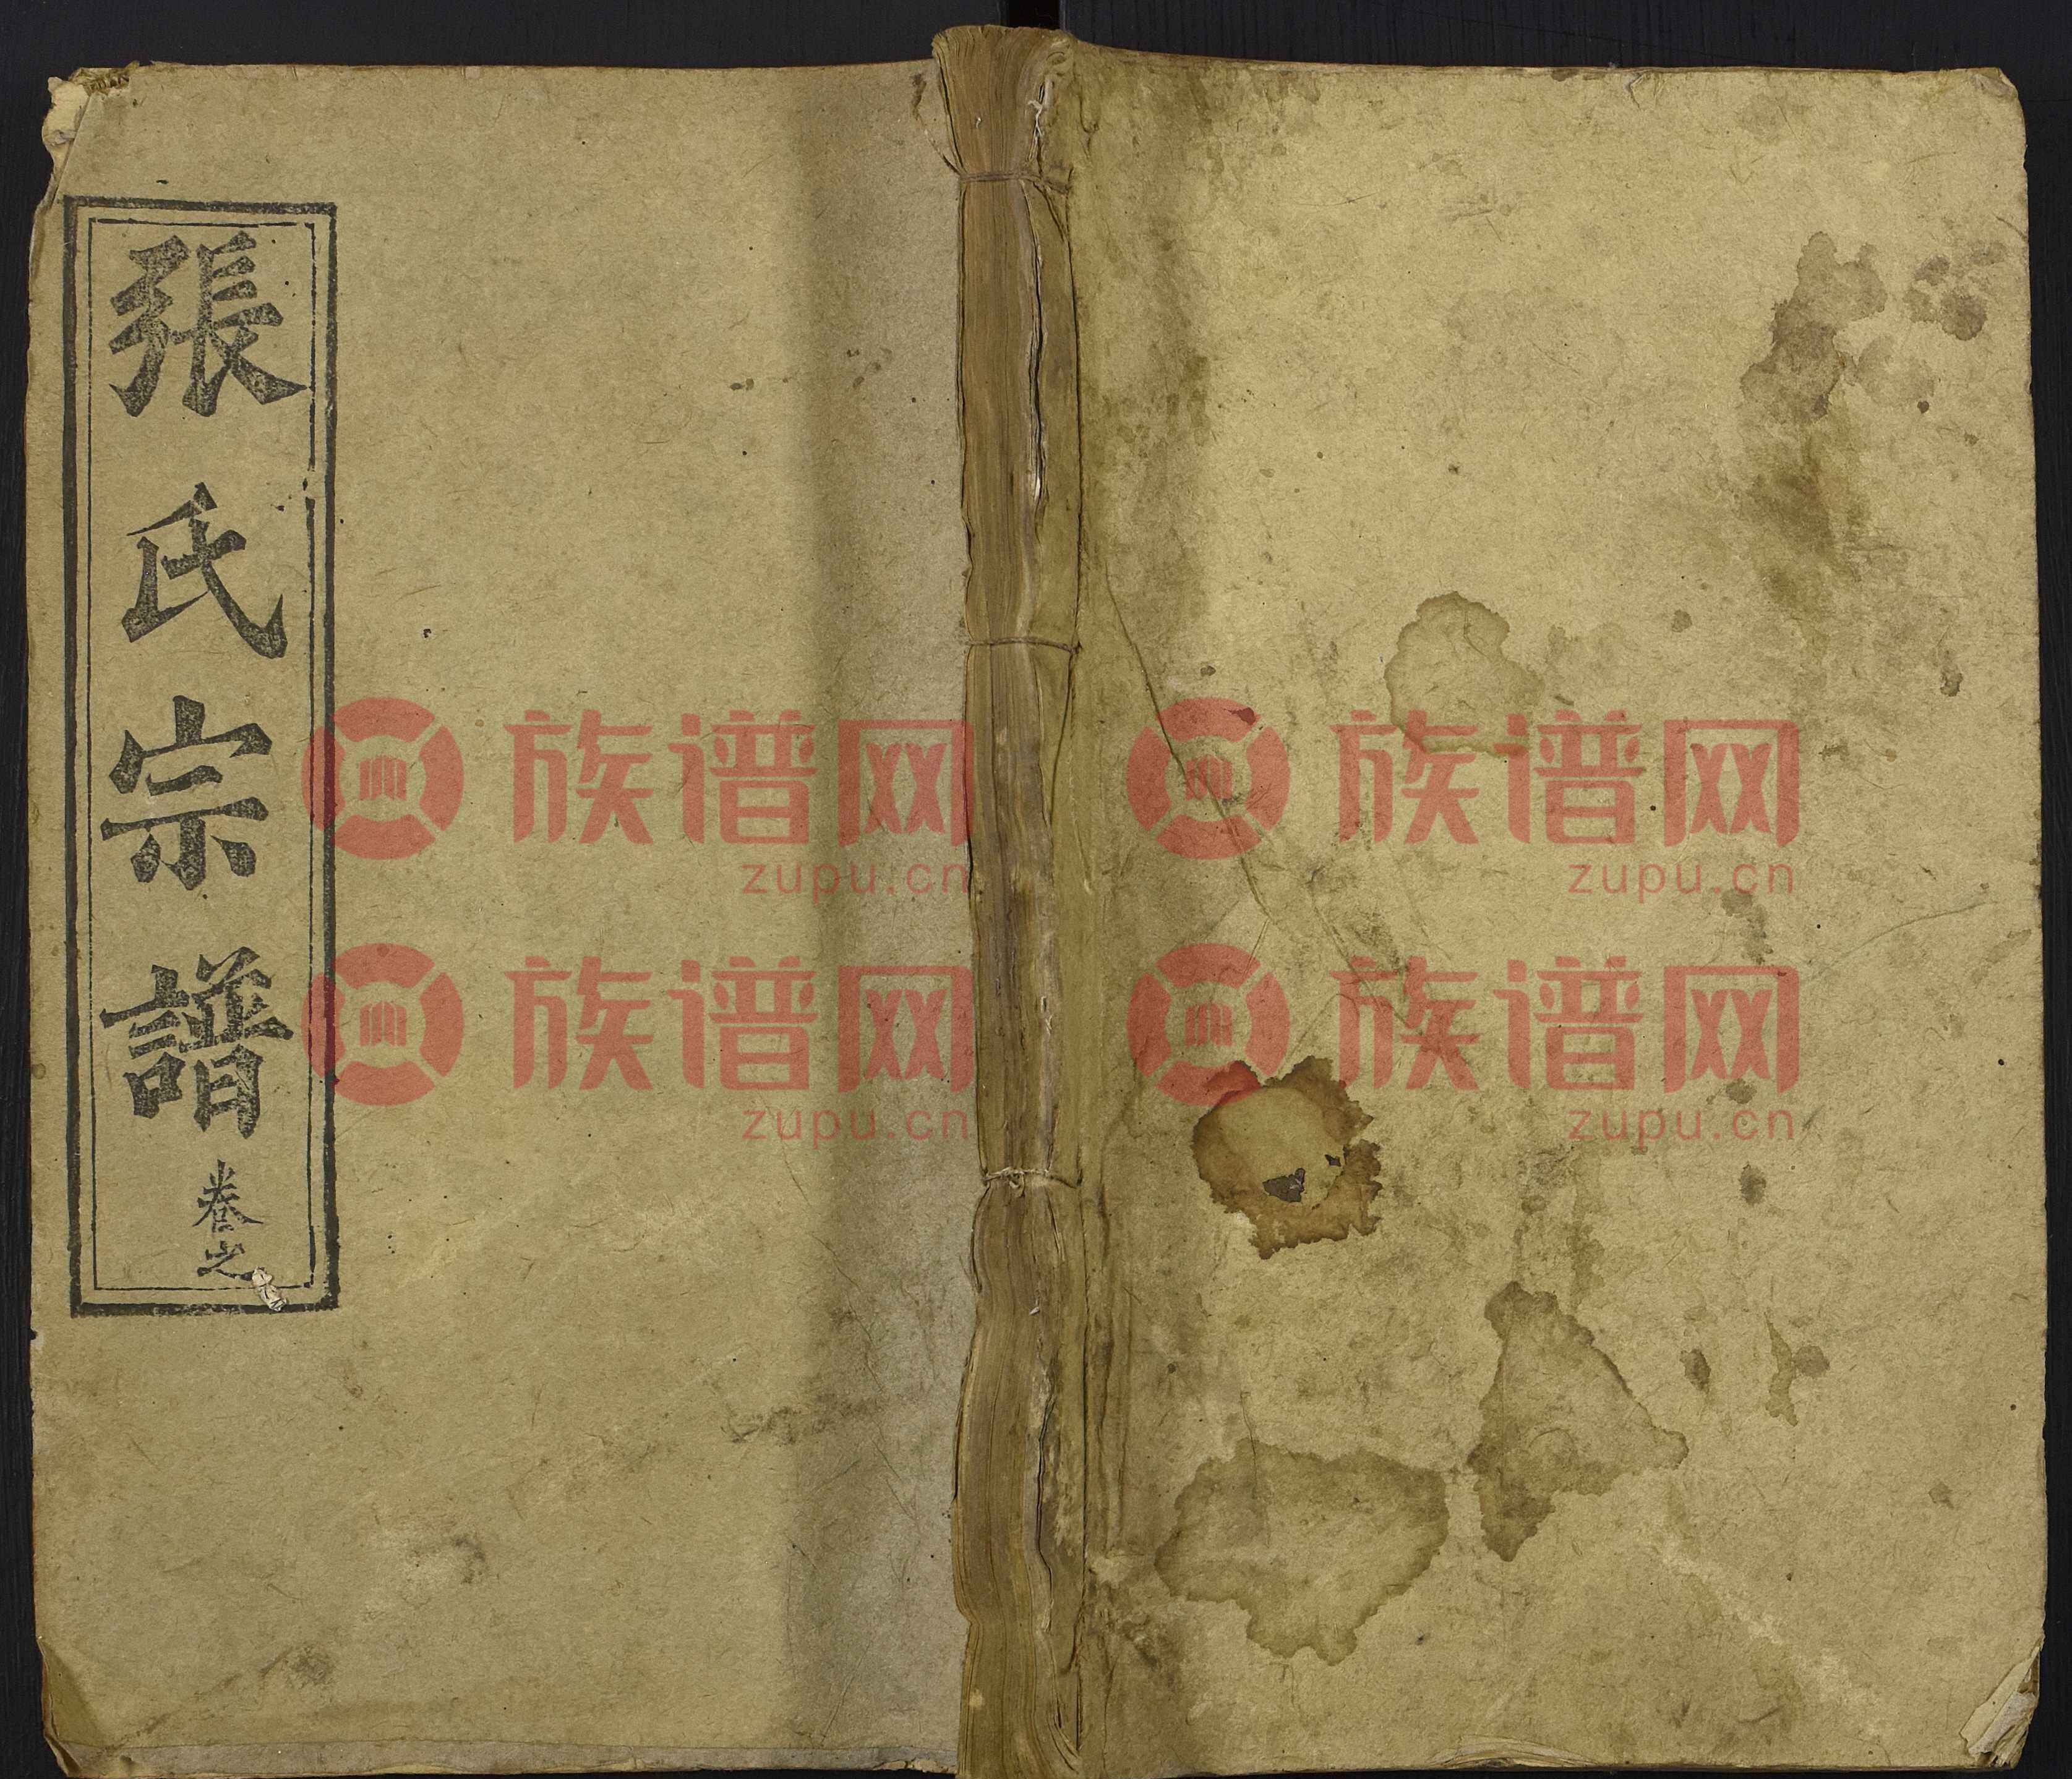 張氏宗譜
卷之
族谱网 族谱网
zupu.cn zupu.cn
族谱网 族谱网
zupu.cn zupu.cn